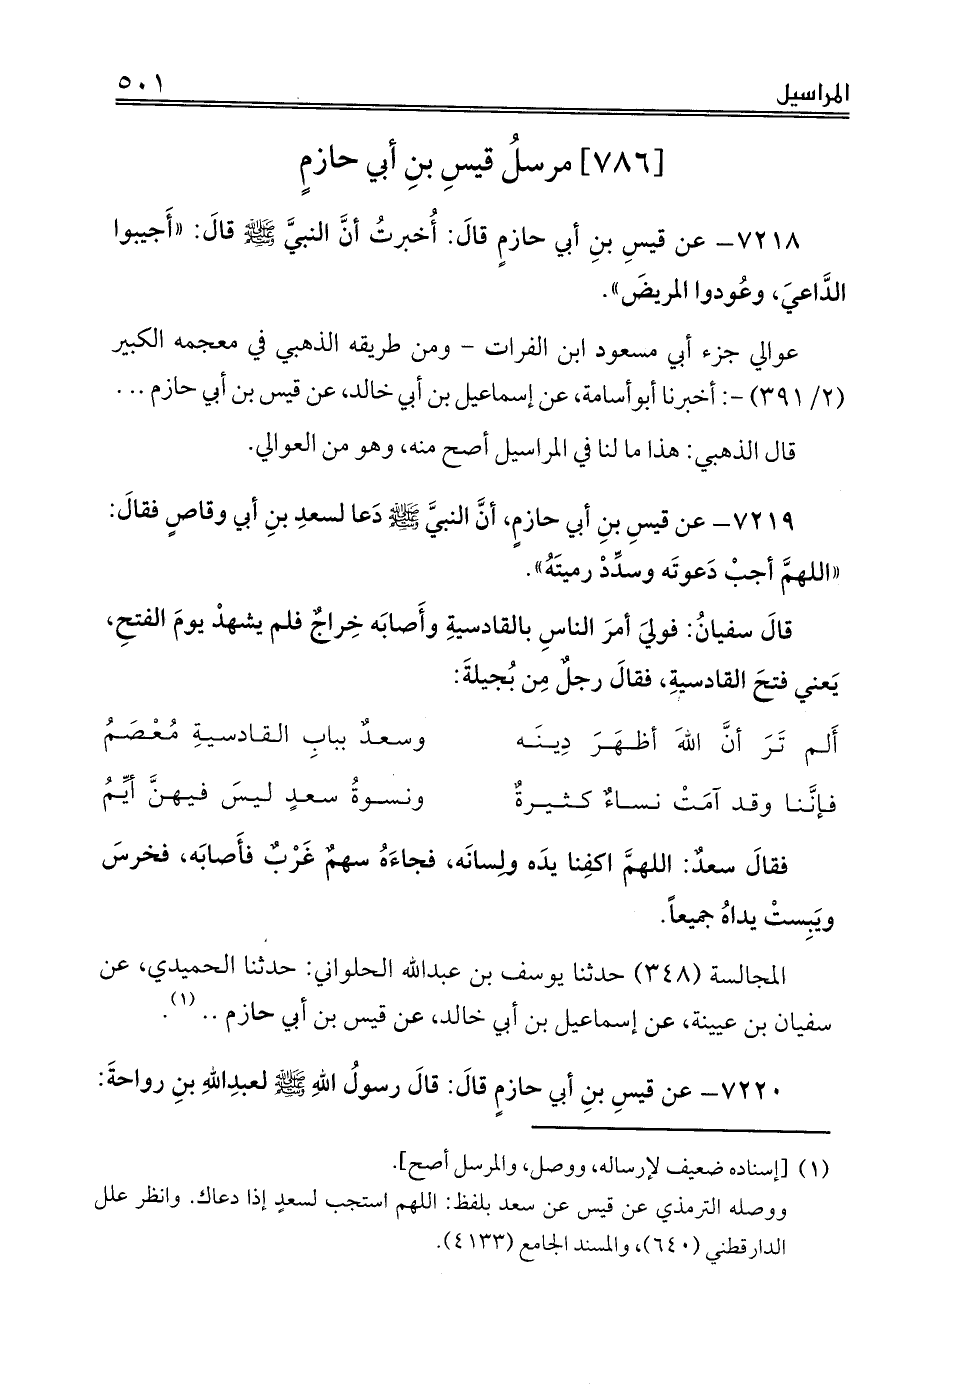 المراسيل ٥٠١
[٧٨٦] مرسلُ قيسِ بنِ أبي حازمٍ
٧٢١٨- عن قيسِ بنِ أبي حازمٍ قالَ: أُخبرتُ أنَّ النبيَّ ﷺ قالَ: «أَجيبوا
الدَّاعيَ، وعُودوا المريضَ».
عوالي جزء أبي مسعود ابن الفرات - ومن طريقه الذهبي في معجمه الكبير
(٢/ ٣٩١) -: أخبرنا أبو أسامة، عن إسماعيل بن أبي خالد، عن قيس بن أبي حازم ...
قال الذهبي: هذا ما لنا في المراسيل أصح منه، وهو من العوالي.
٧٢١٩- عن قيسِ بنِ أبي حازمٍ، أنَّ النبيَّ ﷺ دَعا لسعدِ بنِ أبي وقاصٍ فقالَ:
«اللهمَّ أجبْ دَعوتَه وسدِّدْ رميتَهُ».
قالَ سفيانُ: فوليَ أمرَ الناسِ بالقادسيةِ وأَصابَه خِراجٌ فلم يشهدْ يومَ الفتحِ،
يَعني فتحَ القادسيةِ، فقالَ رجلٌ مِن بُجيلةَ:
أَلم تَرَ أنَّ اللهَ أظهَرَ دِينَه وسعدٌ ببابِ القادسيةِ مُعْصَمُ
فإنَّنا وقد آمَتْ نساءٌ كثيرةٌ ونسوةُ سعدٍ ليسَ فيهنَّ أيِّمُ
فقالَ سعدٌ: اللهمَّ اكفِنا يدَه ولِسانَه، فجاءَهُ سهمٌ غَرْبٌ فأَصابَه، فخرسَ
ويَبِستْ يداهُ جميعاً.
المجالسة (٣٤٨) حدثنا يوسف بن عبدالله الحلواني: حدثنا الحميدي، عن
سفيان بن عيينة، عن إسماعيل بن أبي خالد، عن قيس بن أبي حازم .. (١).
٧٢٢٠- عن قيسِ بنِ أبي حازمٍ قالَ: قالَ رسولُ اللهِ ﷺ لعبدِاللهِ بنِ رواحةَ:
(١) [إسناده ضعيف لإرساله، ووصل، والمرسل أصح].
ووصله الترمذي عن قيس عن سعد بلفظ: اللهم استجب لسعدٍ إذا دعاك. وانظر علل
الدارقطني (٦٤٠)، والمسند الجامع (٤١٣٣).